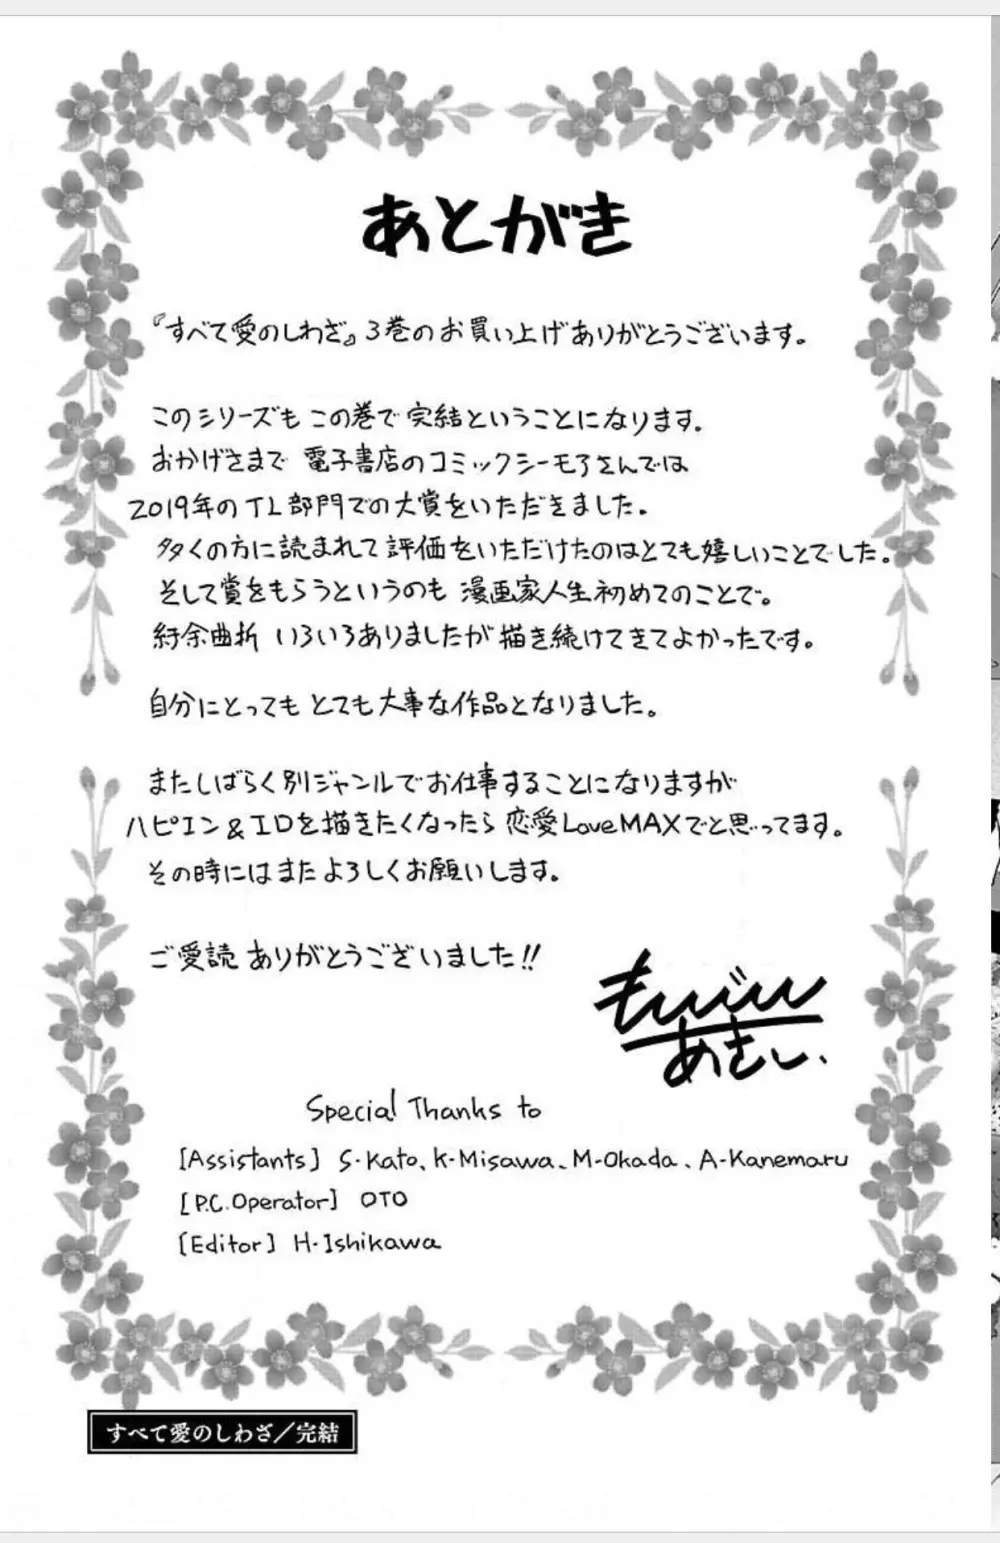 あとがき
『すべて愛のしわざ』3巻のお買い上げありがとうございます。
このシリーズもこの巻で完結ということになります。
おかげさまで 電子書店のコミックシーモアさんでは
2019年のTL部門での大賞をいただきました。
多くの方に読まれて評価をいただけたのはとても嬉しいことでした。
そして賞をもらうというのも 漫画家人生初めてのことで。
紆余曲折 いろいろありましたが描き続けてきてよかったです。
自分にとっても とても大事な作品となりました。
またしばらく別ジャンルでお仕事することになりますが
ハピエン&エロを描きたくなったら 恋愛LoveMAXでと思ってます。
その時にはまたよろしくお願いします。
ご愛読 ありがとうございました!!
あさい、
Special Thanks to
[Assistants] S・Kato、K-Misawa、M-Okada、A-Kanemaru
[P.C.Operator] OTO
[Editor] H・Ishikawa
すべて愛のしわざ/完結